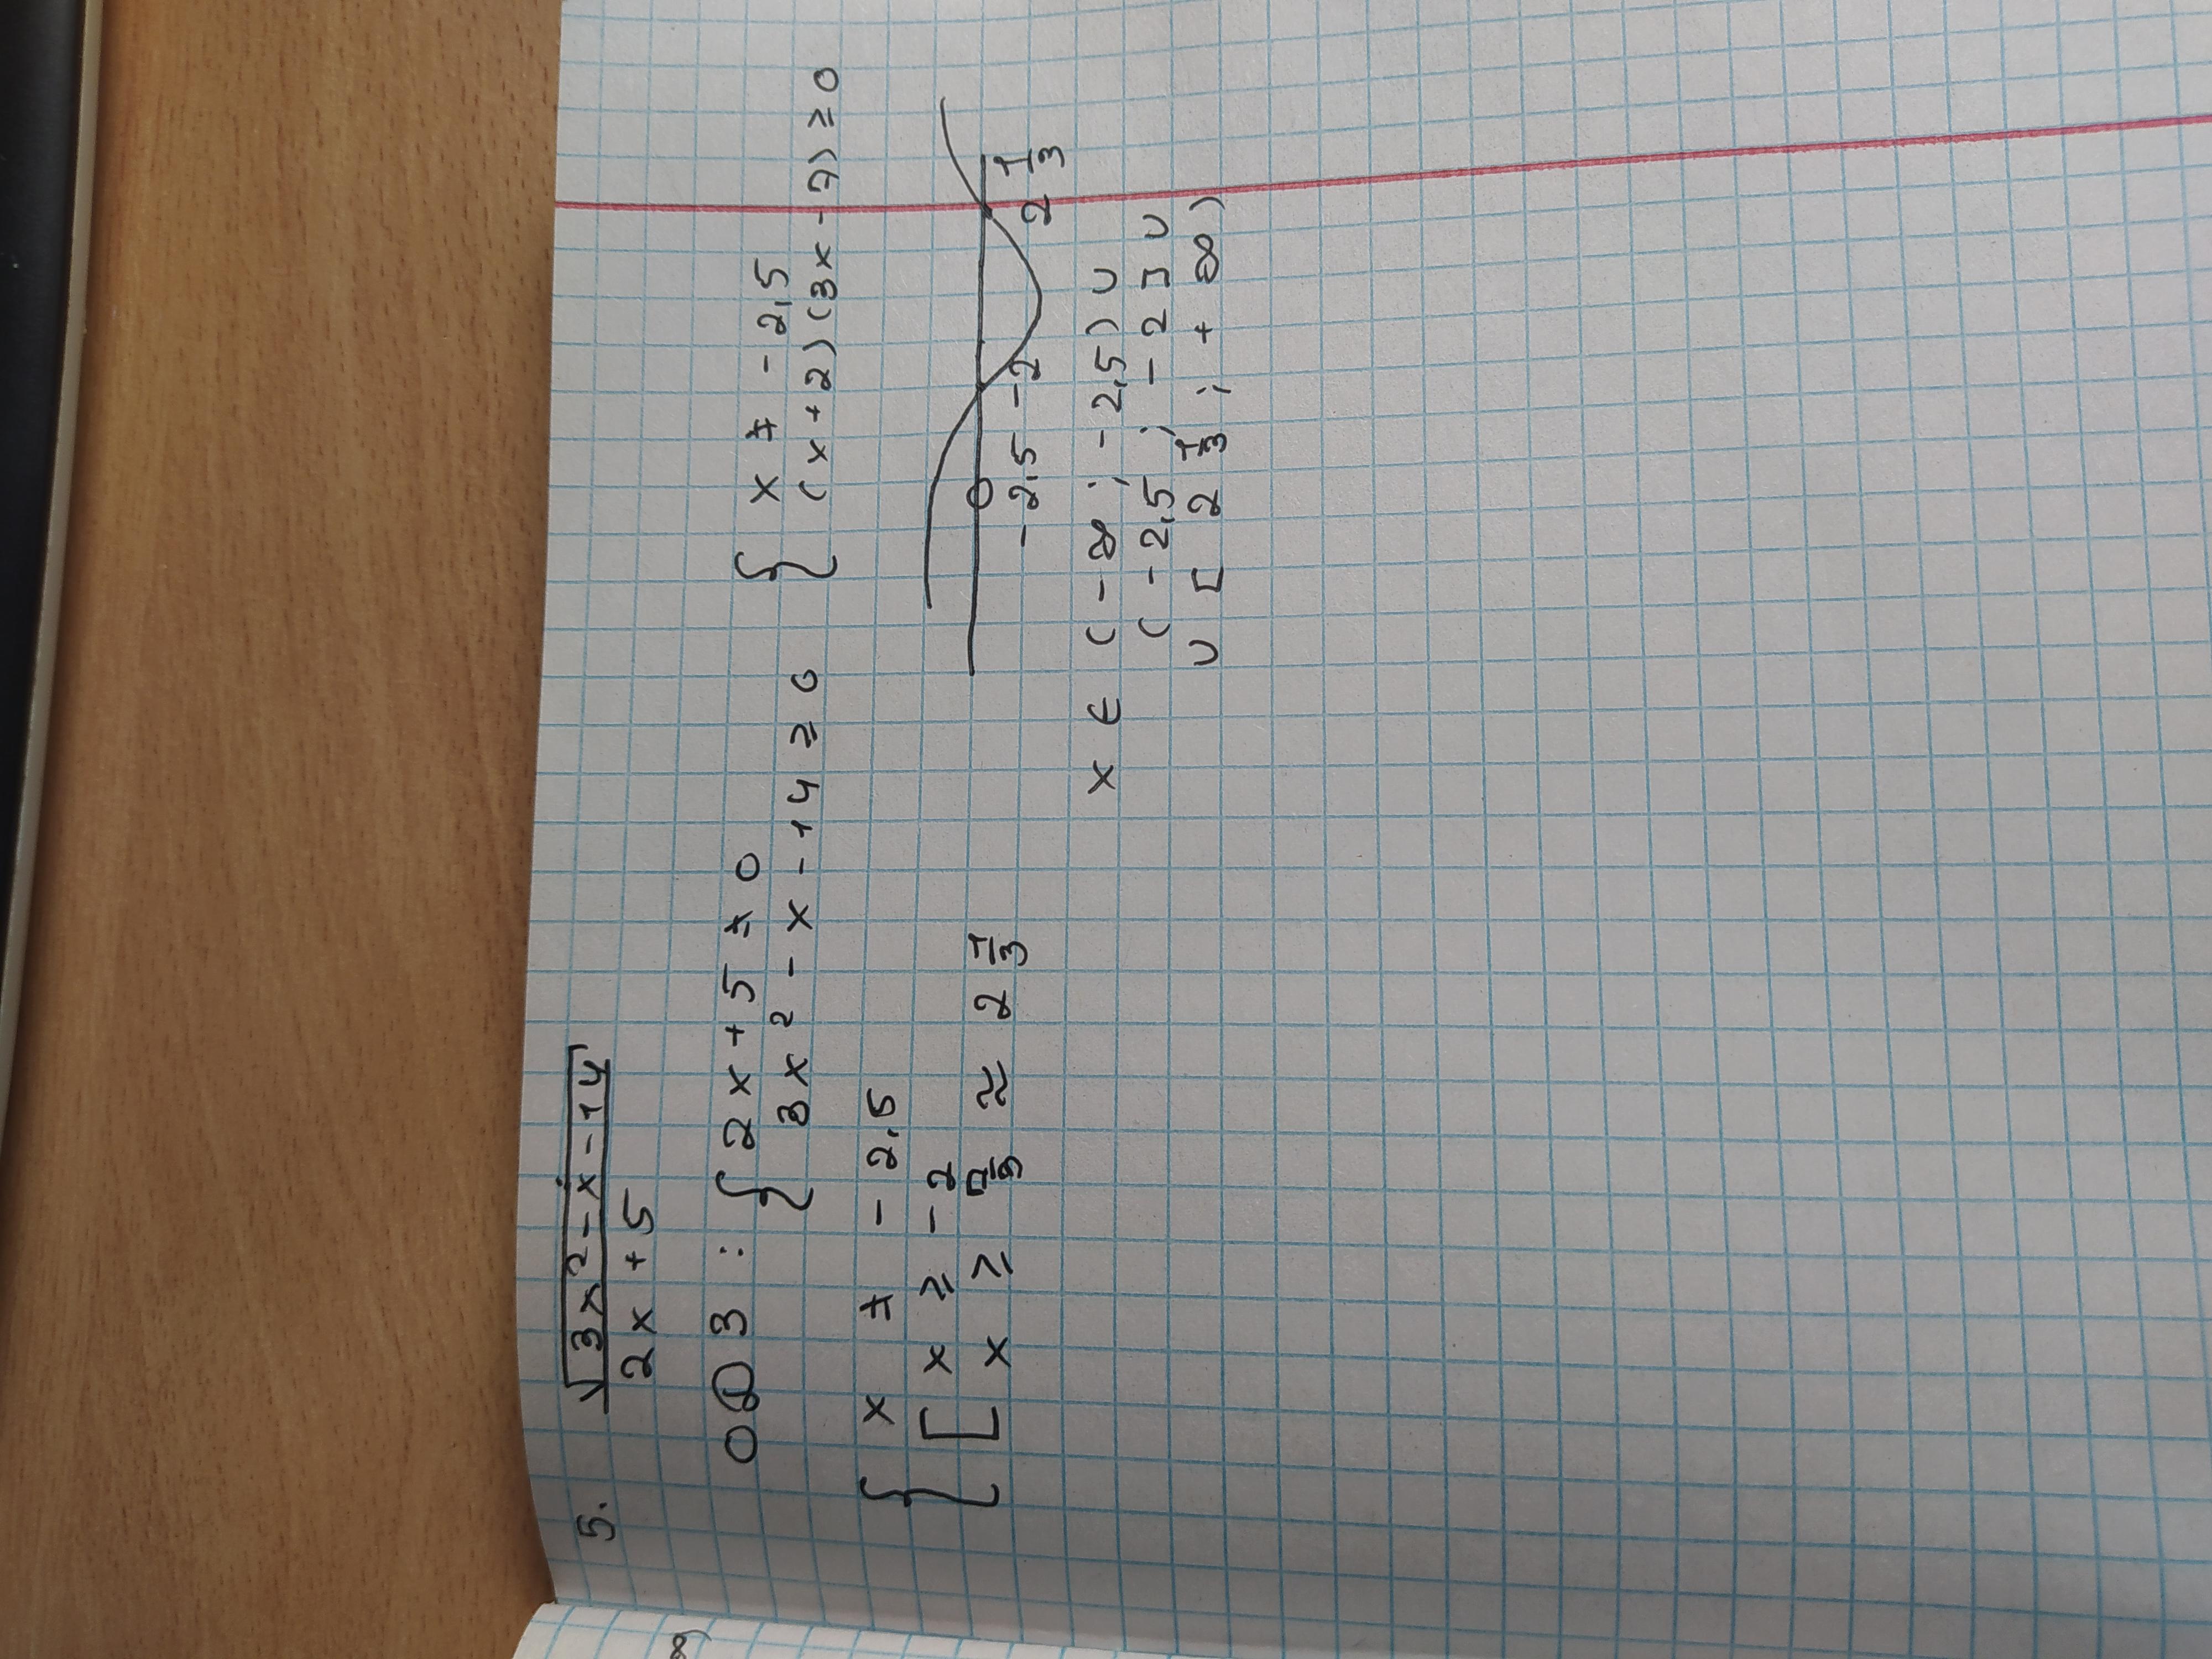 5. √(3x² - x - 14)
2x + 5
ООЗ : { 2x + 5 ≠ 0
3x² - x - 14 ≥ 0
{ x ≠ -2,5
(x + 2)(3x - 7) ≥ 0
{ x ≠ -2,5
[ x ≥ -2
x ≥ 7/3 ≈ 2 1/3
-2,5 -2 2 1/3
x ∈ (-∞ ; -2,5) ∪
(-2,5 ; -2] ∪
∪ [2 1/3 ; +∞)
∞)